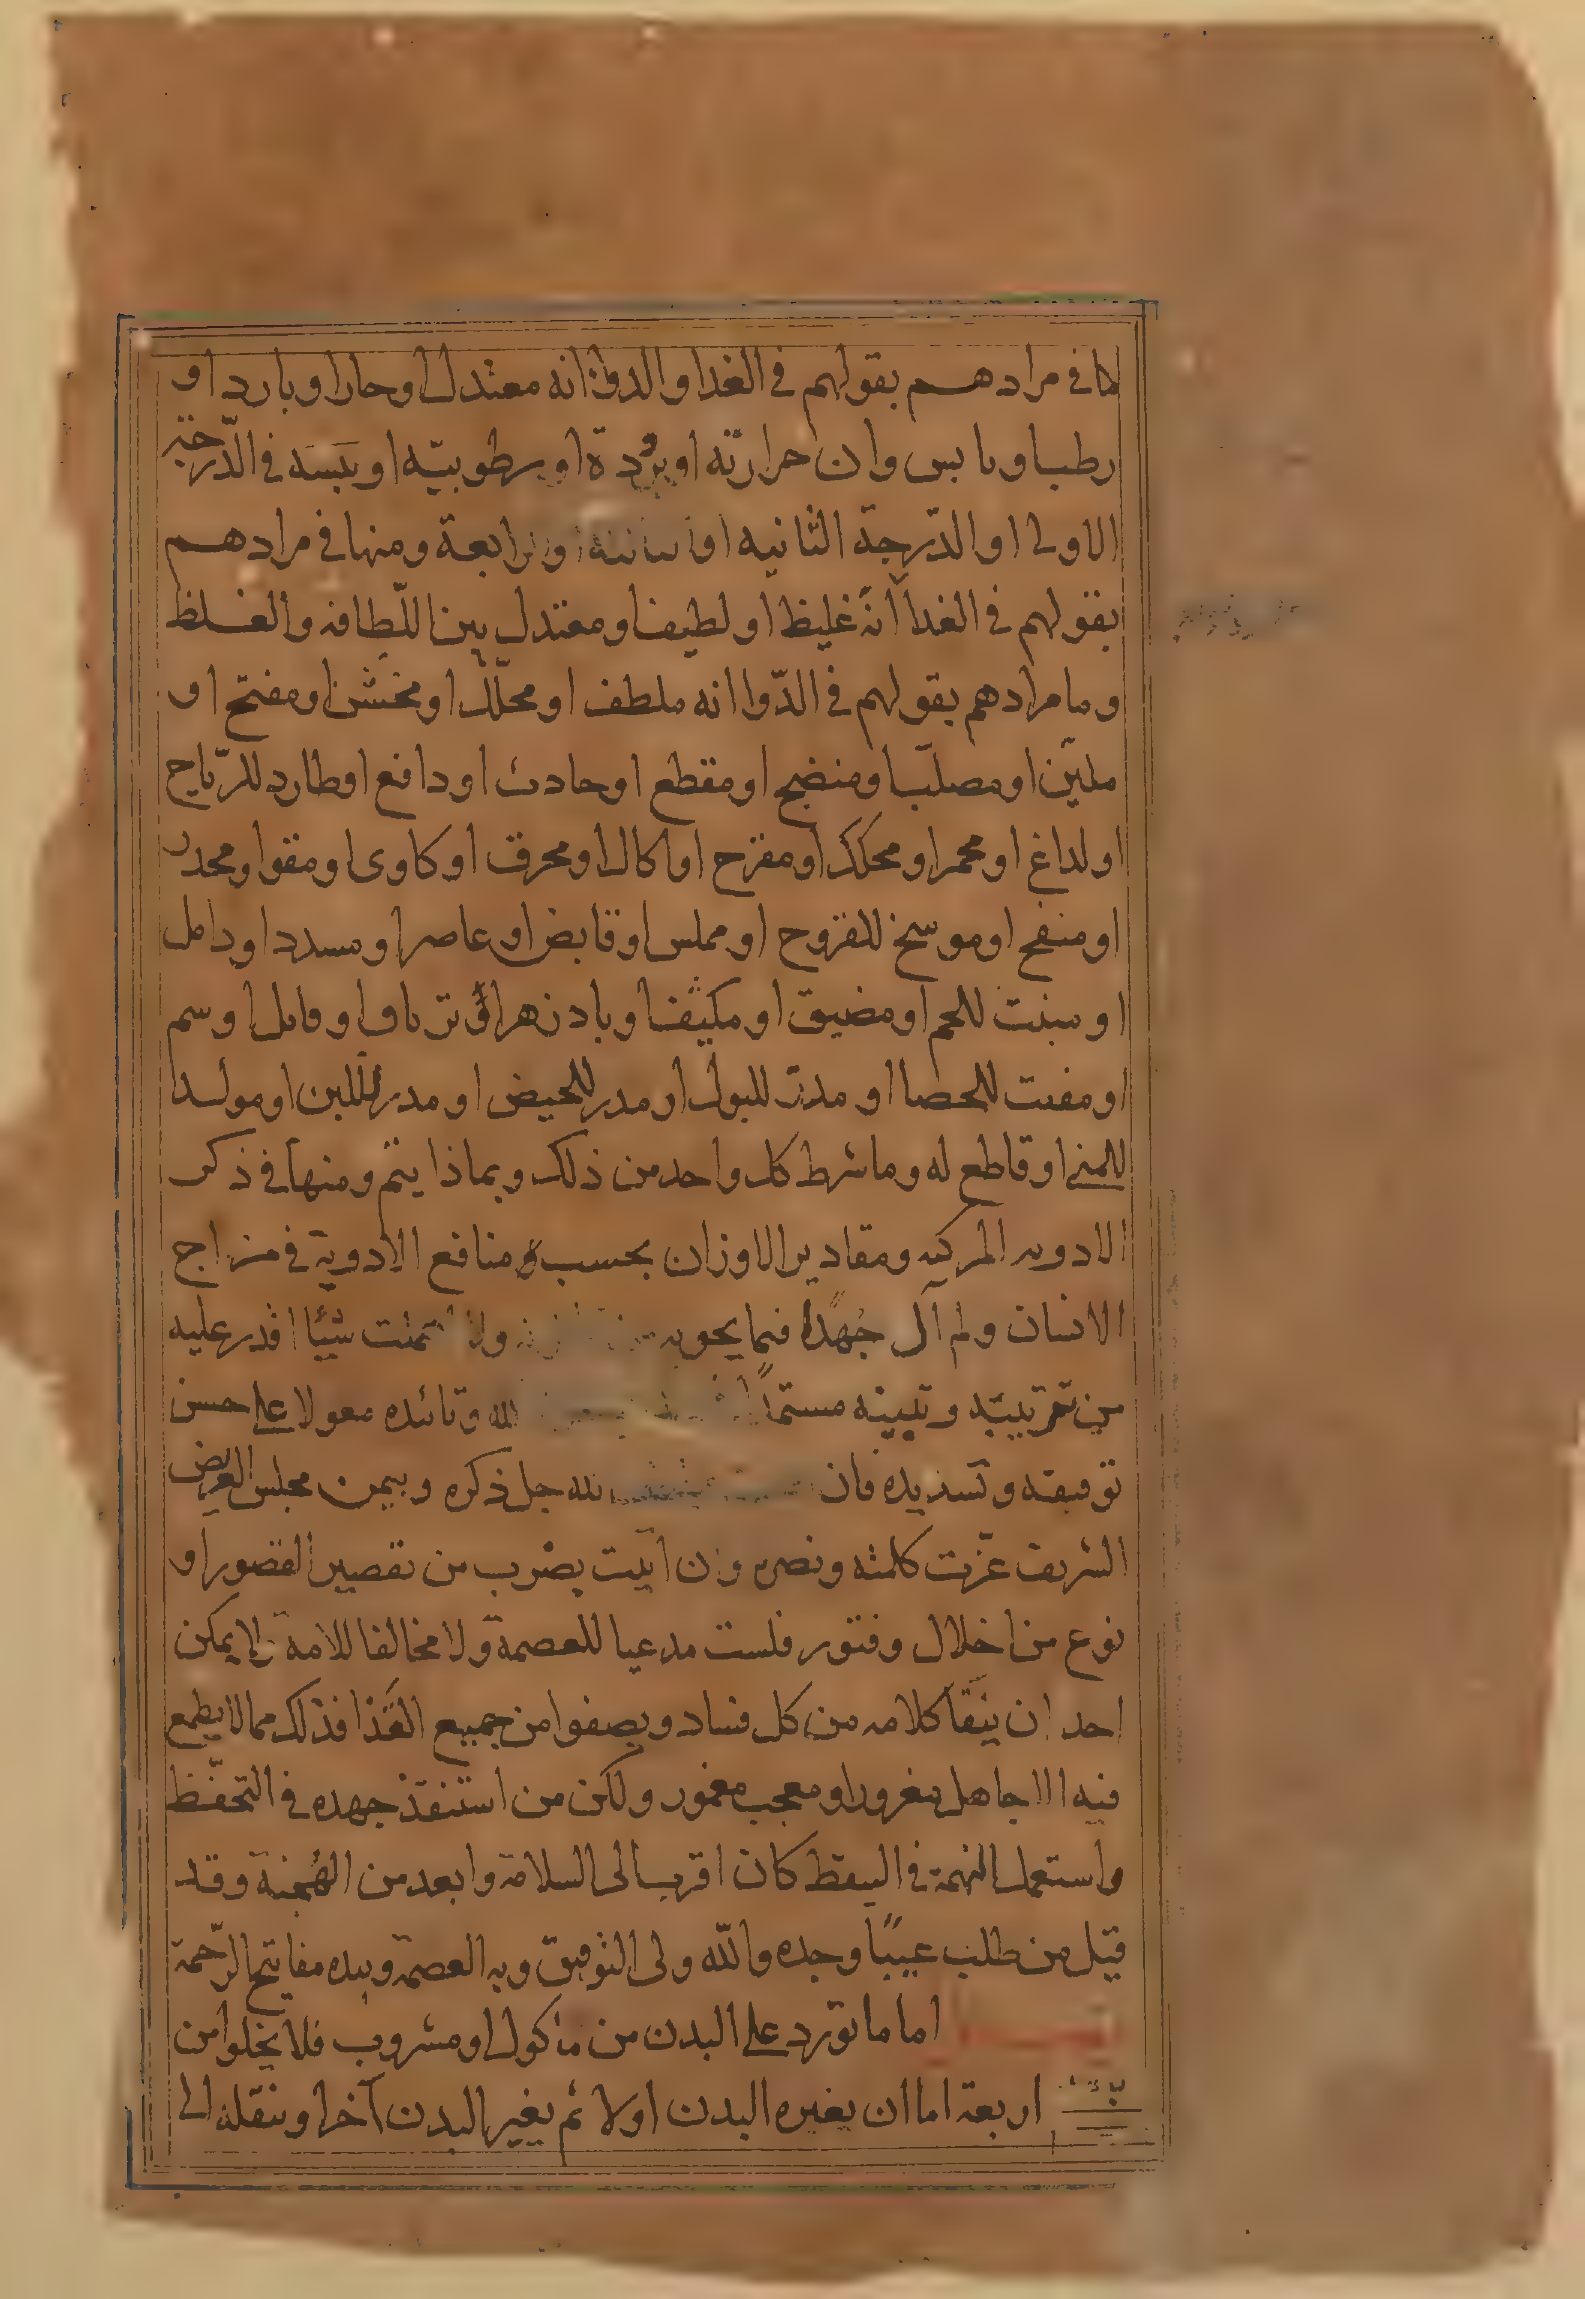 كما فى مرادهم بقولهم فى الغدا والدوا انه معتدل او حار او بارد او
رطب او يابس وان حرارته او بردة او رطوبيته او يبسه فى الدّرجة
الاولى او الدّرجة الثانيه او الرابعة ومنها فى مرادهم
بقولهم فى الغدا انّه غليظ او لطيف او معتدل بين اللّطافه والغلظ
وما مرادهم بقولهم فى الدّوا انه ملطف او محلّل او مخشّن او مفتح او
مليّن او مصلّب او منضج او مقطع او جادب او دافع او طارد للرّياح
او لداغ او محمر او محكك او مقرح او اكال او محرق او كاوى او مقو او مخدر
او منفخ او موسخ للقروح او مملس او قابض او عاصر او مسدد او دامل
او منبت للحم او مضيق او مكيّف او بادزهر او ترياق او قاتل او سم
او مفتت للحصا او مدرّ للبول او مدر للحيض او مدر للبن او مولد
للمنى او قاطع له وما شرط كل واحد من ذلك وبماذا يتم ومنها فى ذكر
الادويه المركبه ومقادير الاوزان بحسب منافع الادوية فى مزاج
الانسان ولم آل جهدًا فيما يحويه شيا اقدر عليه
من تقريبه وتبيينه مستمدًا الله وتائده معولا على حسن
توفيقه وتسديده فان لله جل ذكره وبيمن مجلس العريض
الشريف عزّت كلمته ونصره وان اتيت بضرب من تقصير القصور او
نوع من اخلال وفتور فلست مدعيا للعصمة ولا مخالفا للامة لا يمكن
احد ان ينقا كلامه من كل فساد ويصفوا من جميع القذا فذلك مما لا يطمع
فيه الا جاهل مغرور او معجب مغمور ولكن من استنفذ جهده فى التحفّظ
واستعمل النهمة فى اليقظ كان اقرب الى السلامة وابعد من الهُجنة وقد
قيل من طلب عيبًا وجده والله ولى التوفيق وبه العصمة وبيده مفاتيح الرّحمة
اما ما تورد على البدن من ماكول او مشروب فلا يخلوا من
اربعة اما ان يغيره البدن اولا ثم يغير البدن آخرا وينقله الى